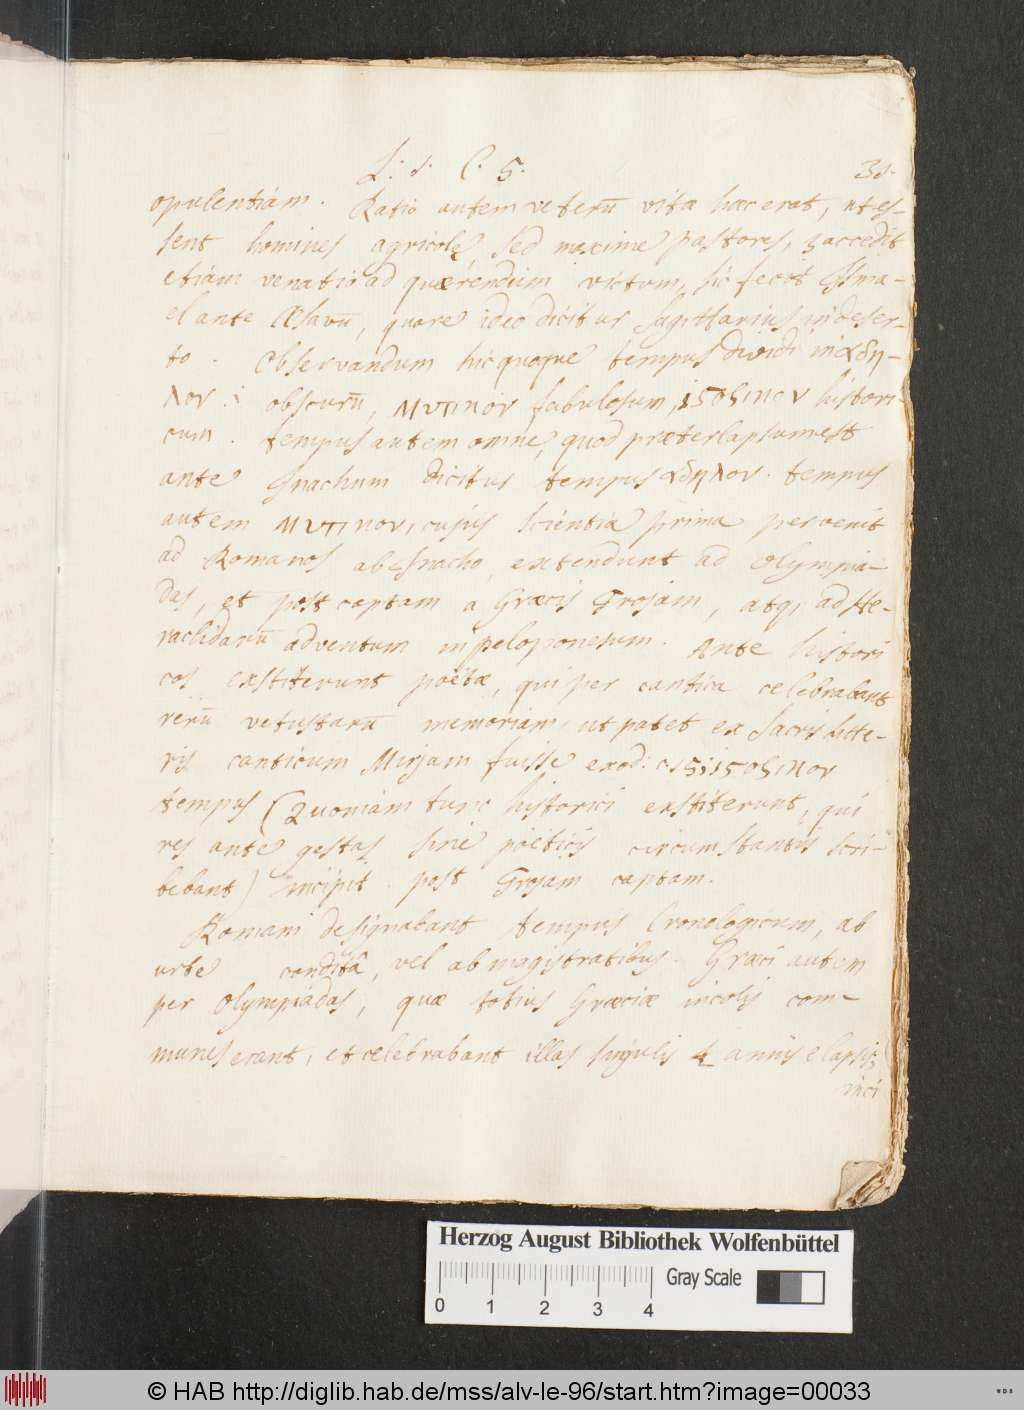 L: 1. C. 5. 31.
opulentiam. Ratio autem veterū vitæ hæc erat, ut es-
sent homines agricolę, sed maxime pastores, 3 accedit
etiam venatio ad quærendum victum, sic fecit Isma-
el ante Æsavū, quare ideo dicitur sagittarius in deser-
to. Observandum hic quoque tempus dividi in αδη-
λον. i obscurū, μυτικον fabulosum, ιςοϱικον histori-
cum. tempus autem omne, quod præterlapsum est
ante Inachum dicitur tempus αδηλον. tempus
autem μυτικον, cujus scientia prima pervenit
ad Romanos ab Inacho, extendunt ad Olympia-
das, et post captam a Græcis Trojam, atq; ad He-
raclidarū adventum in Peloponesum. Ante histori
cos exstiterunt poëtæ, qui per cantica celebrabant
rerū vetustarū memoriam, ut patet ex sacris litte-
ris canticum Mirjam fuisse exod: c 15; ιςοϱικον
tempus (Quoniam tunc historici exstiterunt, qui
res ante gestas sine poëticis circumstantiis scri-
bebant) incipit post Trojam captam.
Romani designabant tempus Cronologicum, ab
urbe conditâ, vel ab magistratibus. Græci autem
per Olympiadas, quæ totius Græciæ incolis com-
munes erant, et celebrabant illas singulis 4 annis elapsis,
inci
Herzog August Bibliothek Wolfenbüttel
0 1 2 3 4 Gray Scale
© HAB http://diglib.hab.de/mss/alv-le-96/start.htm?image=00033